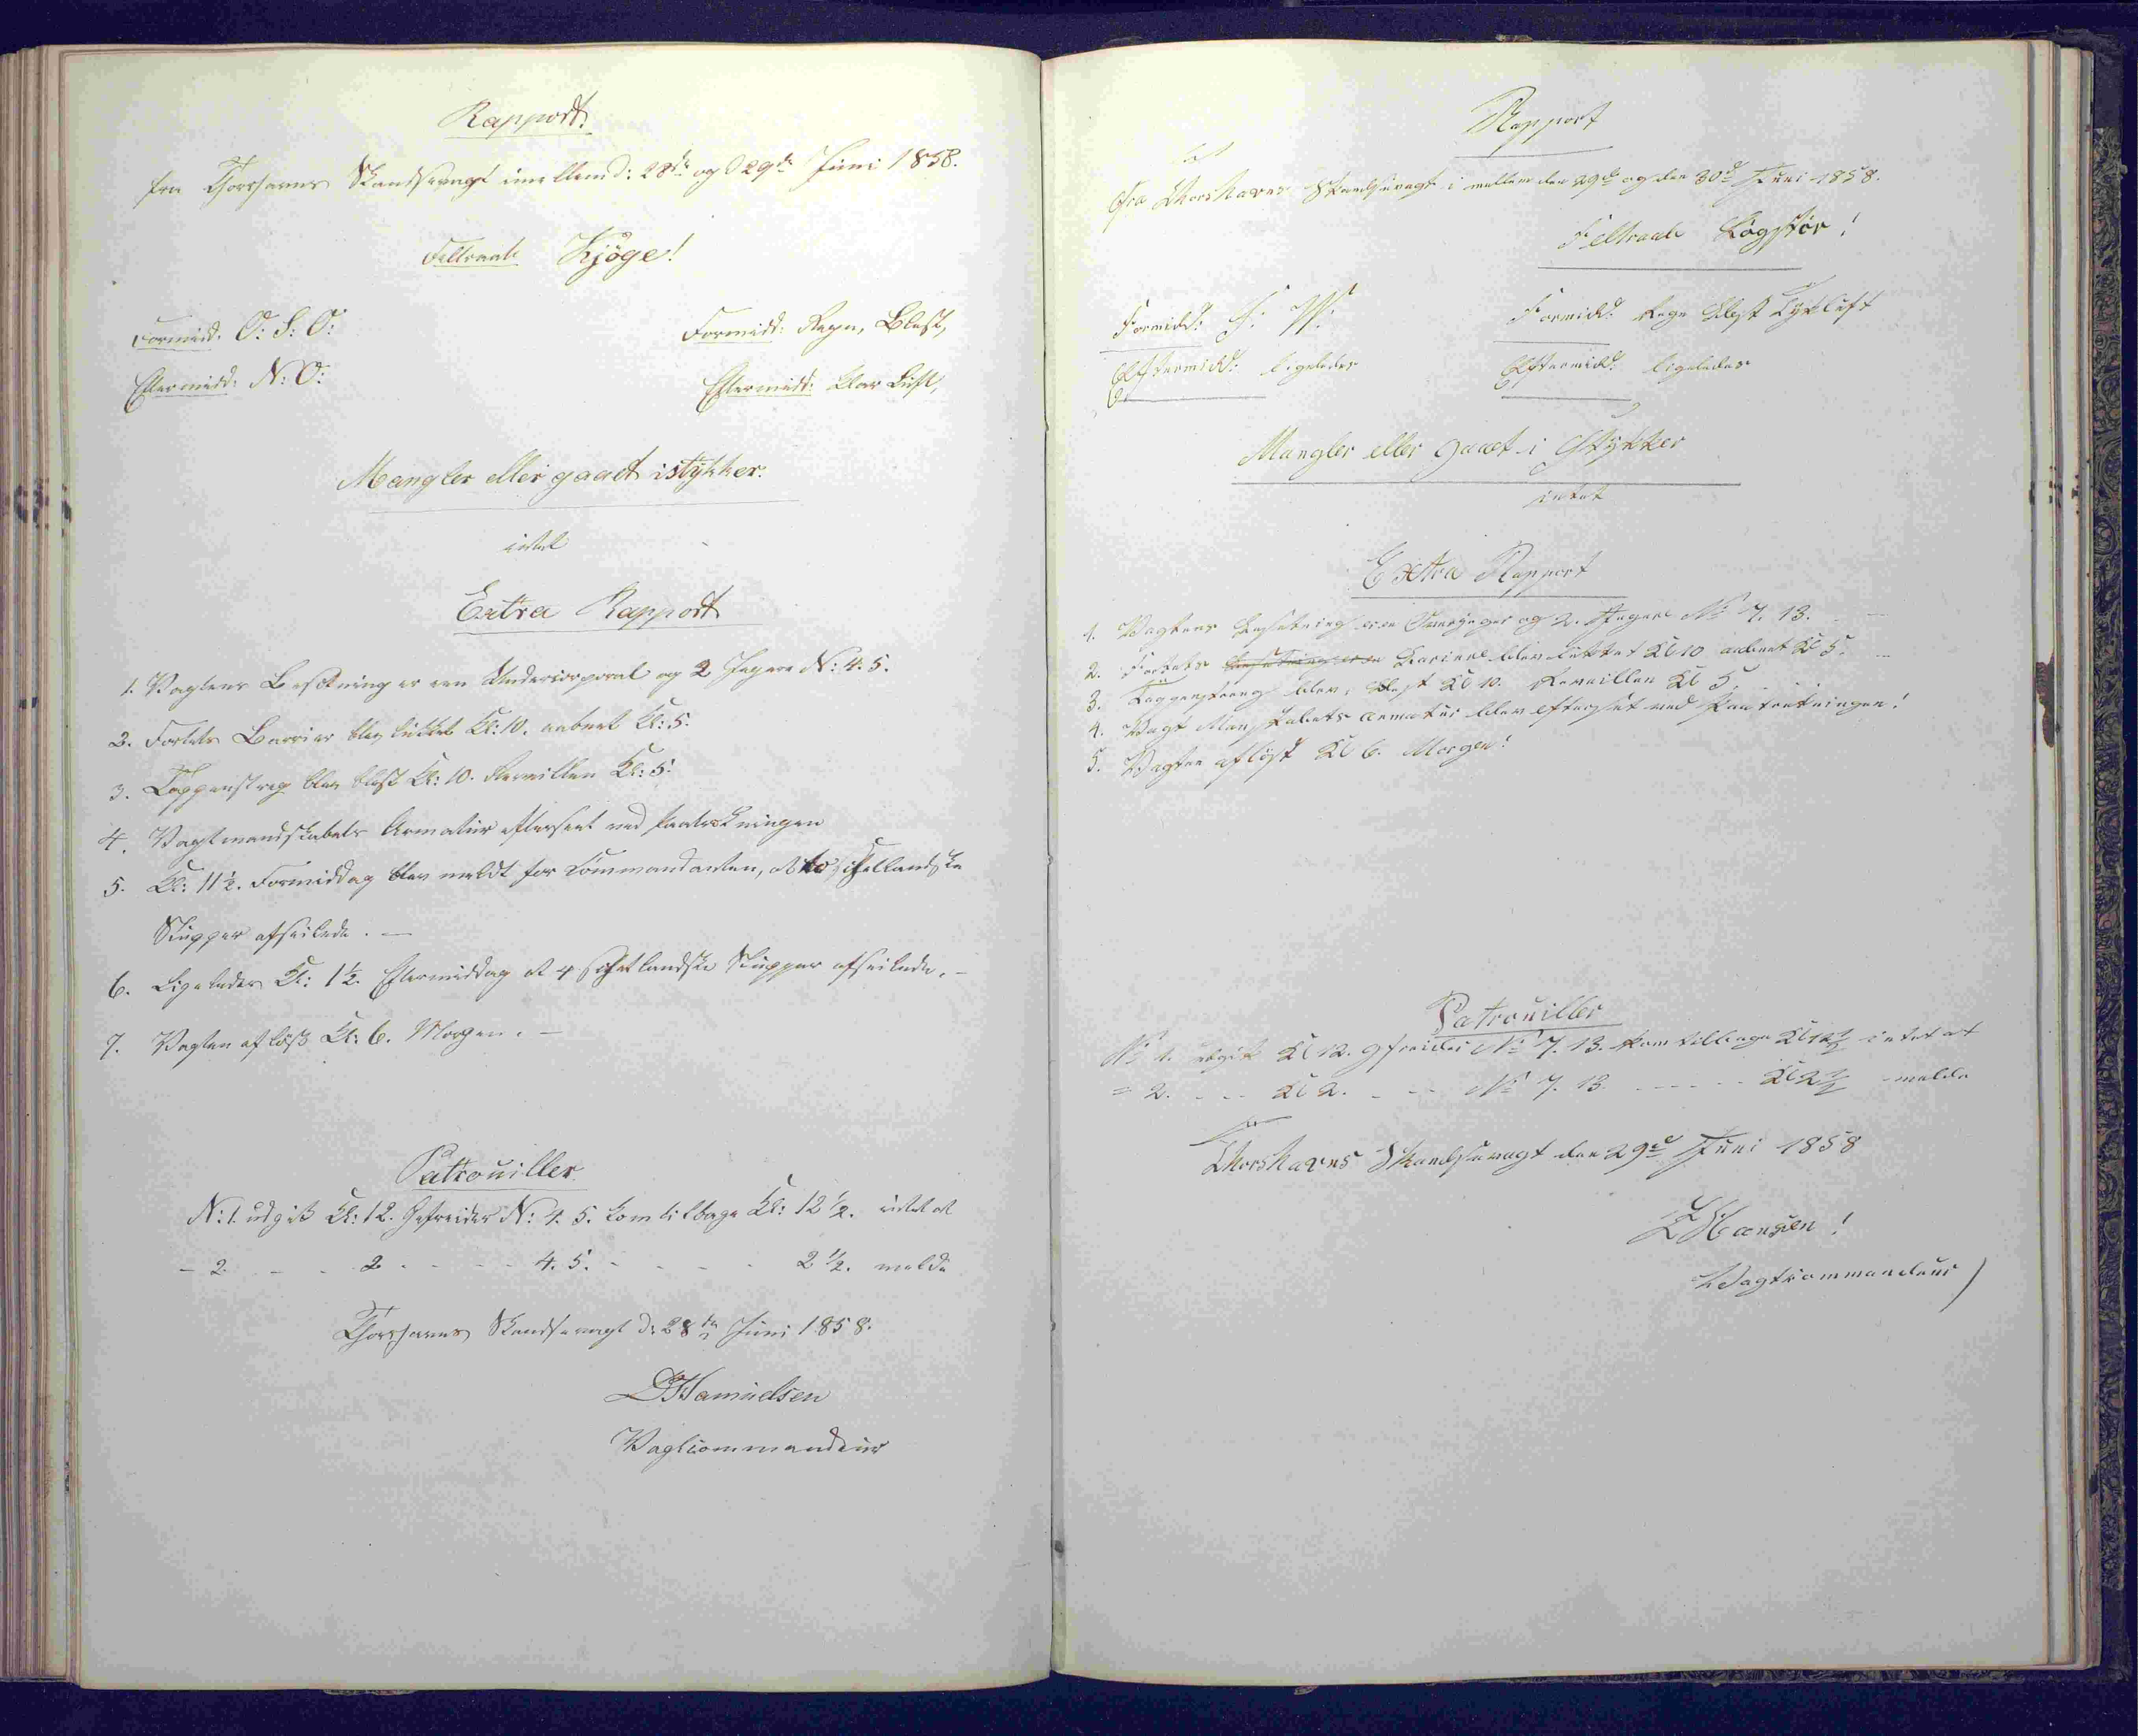 Rapport.
fra Thorshavns Skandsevagt imellem d: 28de og 29de Juni 1858.
Feltraab Kjöge!
Formidd. O: S: O:
Formidd: Regn, Blæst,
Eftermidd: N: O:
Eftermidd: Klar Luft,
Mangler eller gaaet istykker:
intet
Extra Rapport
1. Vagtens Besætning er een Undercorporal og 2 Jægere N: 4. 5.
2. Fortets Barrier blev lukket Kl: 10. aabnet Kl: 5.
3. Tappenstreg blev blæst Kl: 10. Reveillen Kl: 5.
4. Vagtmandskabets Armatur efterseet ved Paatrædningen
5. Kl: 11½. Formiddag blev meldt for Commandanten, at to schetlandske
Slupper afseilede. —
6. Ligeledes Kl: 1½. Eftermiddag at 4 schetlandske Slupper afseilede. —
7. Vagten aflöst Kl: 6. Morgen. —
Patrouiller.
N: 1. udgik Kl: 12. Gefreider N: 4. 5. kom tilbage Kl: 12½. intet at
- 2. - - 2 - - - - 4. 5. - - - - 2½. melde
Thorshavns Skandsevagt d: 28de Juni 1858.
Samuelsen
Vagtcommandeur
Rapport
Fra Thorshavns Skandsevagt i mellem den 29de og den 30d Juni 1858.
Feltraab Lögstör!
Formidd: S: W:
Formidd: Regn Blæst Tyk luft
Eftermidd: ligeledes
Eftermidd: ligeledes
Mangler eller gaaet i Stykker
intet
Extra Rapport
1. Vagtens Besætning er en Overjæger og 2. Jægere No 7. 13.
2. Fortets Besætning er en Bariere blev lukket Kl 10 aabnet Kl 5.
3. Tappenstreng blev blæst Kl 10. Reveillen Kl 5.
4. Vagt Mandskabets armatur blev efterset ved Paatrætningen!
5. Vagten aflöst Kl 6. Morgen!
Patrouiller
No 1. udgik Kl 12. gfreider No 7. 13. kom tilbage Kl 12½ intet at
= 2. - - - Kl 2. - - - No 7. 13. - - - - - Kl 2½ - melde
Thorshavns Skandsevagt den 29d Juni 1858
Hansen!
Vagtcommandeur